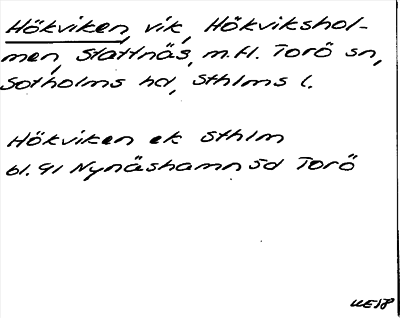 Hökviken, vik, Hökvikshol-
men, Slättnäs, m.fl. Torö sn,
Sotholms hd, Sthlms l.
Hökviken ek Sthlm
bl. 91 Nynäshamn Sd Torö